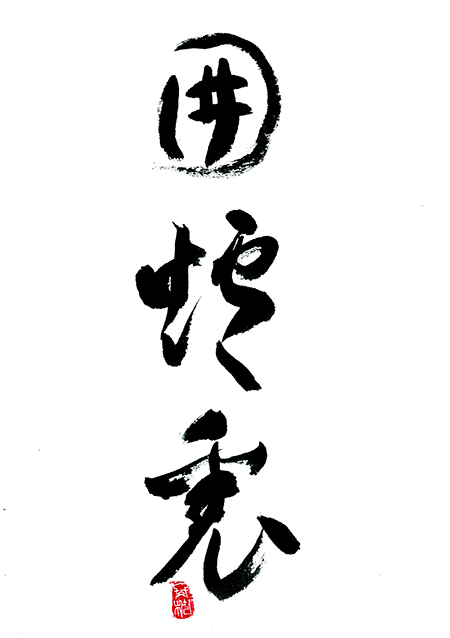 囲炉裏